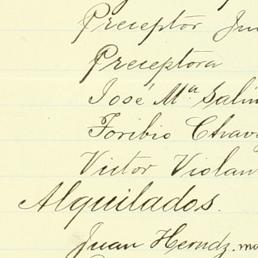 Preceptor
Preceptora
José Ma Salin
Toribio Chav
Victor Violan
Alquilados.
Juan Herndz.